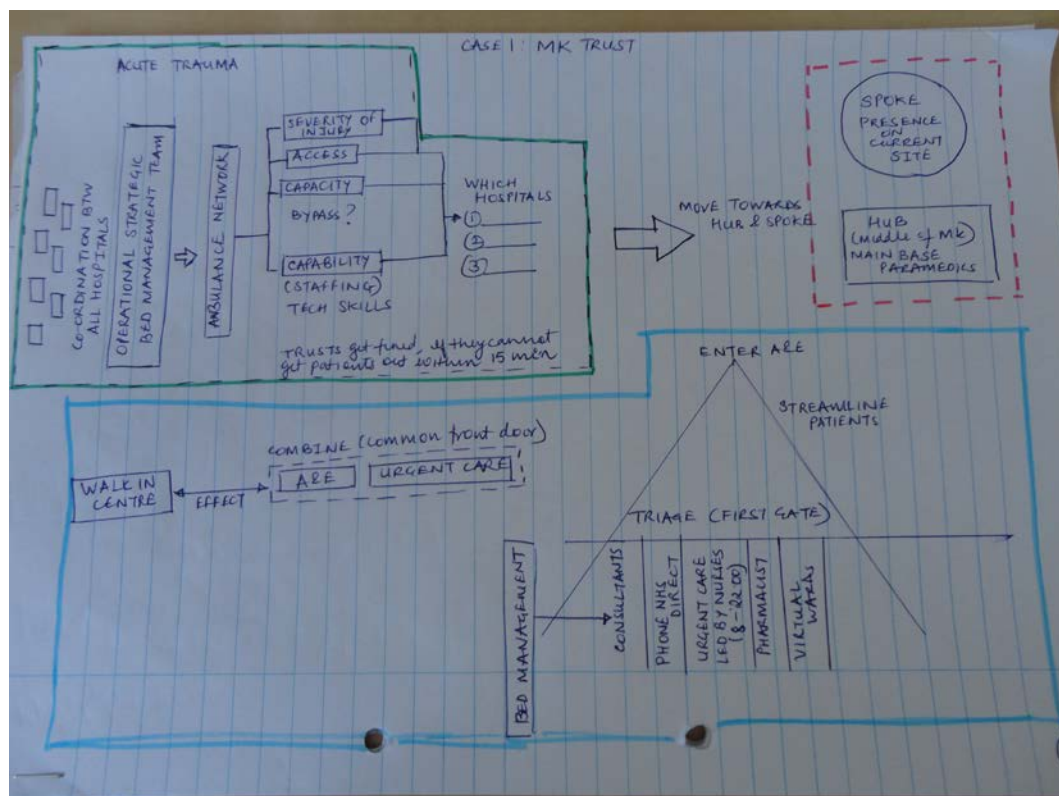 CASE 1: MK TRUST
ACUTE TRAUMA
CO-ORDINATION BTW
ALL HOSPITALS
OPERATIONAL STRATEGIC
BED MANAGEMENT TEAM
AMBULANCE NETWORK
SEVERITY OF
INJURY
ACCESS
CAPACITY
BYPASS?
CAPABILITY
(STAFFING)
TECH SKILLS
WHICH
HOSPITALS
(1)
(2)
(3)
TRUSTS get fined, if they cannot
get patients out within 15 min
MOVE TOWARDS
HUB & SPOKE
SPOKE
PRESENCE
ON
CURRENT
SITE
HUB
(Middle of MK)
MAIN BASE
PARAMEDICS
WALK IN
CENTRE
EFFECT
COMBINE (common front door)
A&E
URGENT CARE
ENTER A&E
STREAMLINE
PATIENTS
TRIAGE (FIRST GATE)
BED MANAGEMENT
CONSULTANTS
PHONE NHS
DIRECT
URGENT CARE
LED BY NURSES
(8-22:00)
PHARMALIST
VIRTUAL
WARDS